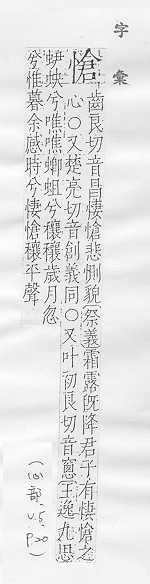 字彙
愴
齒良切音昌悽愴悲惻貌祭義霜露旣降君子有悽愴之
心○又楚亮切音創義同○又叶初良切音窻王逸九思
蚗兮噍噍蝍蛆兮穰穰歲月忽
兮惟暮余感時兮悽愴穰平聲
(心部, v.5, p.20)